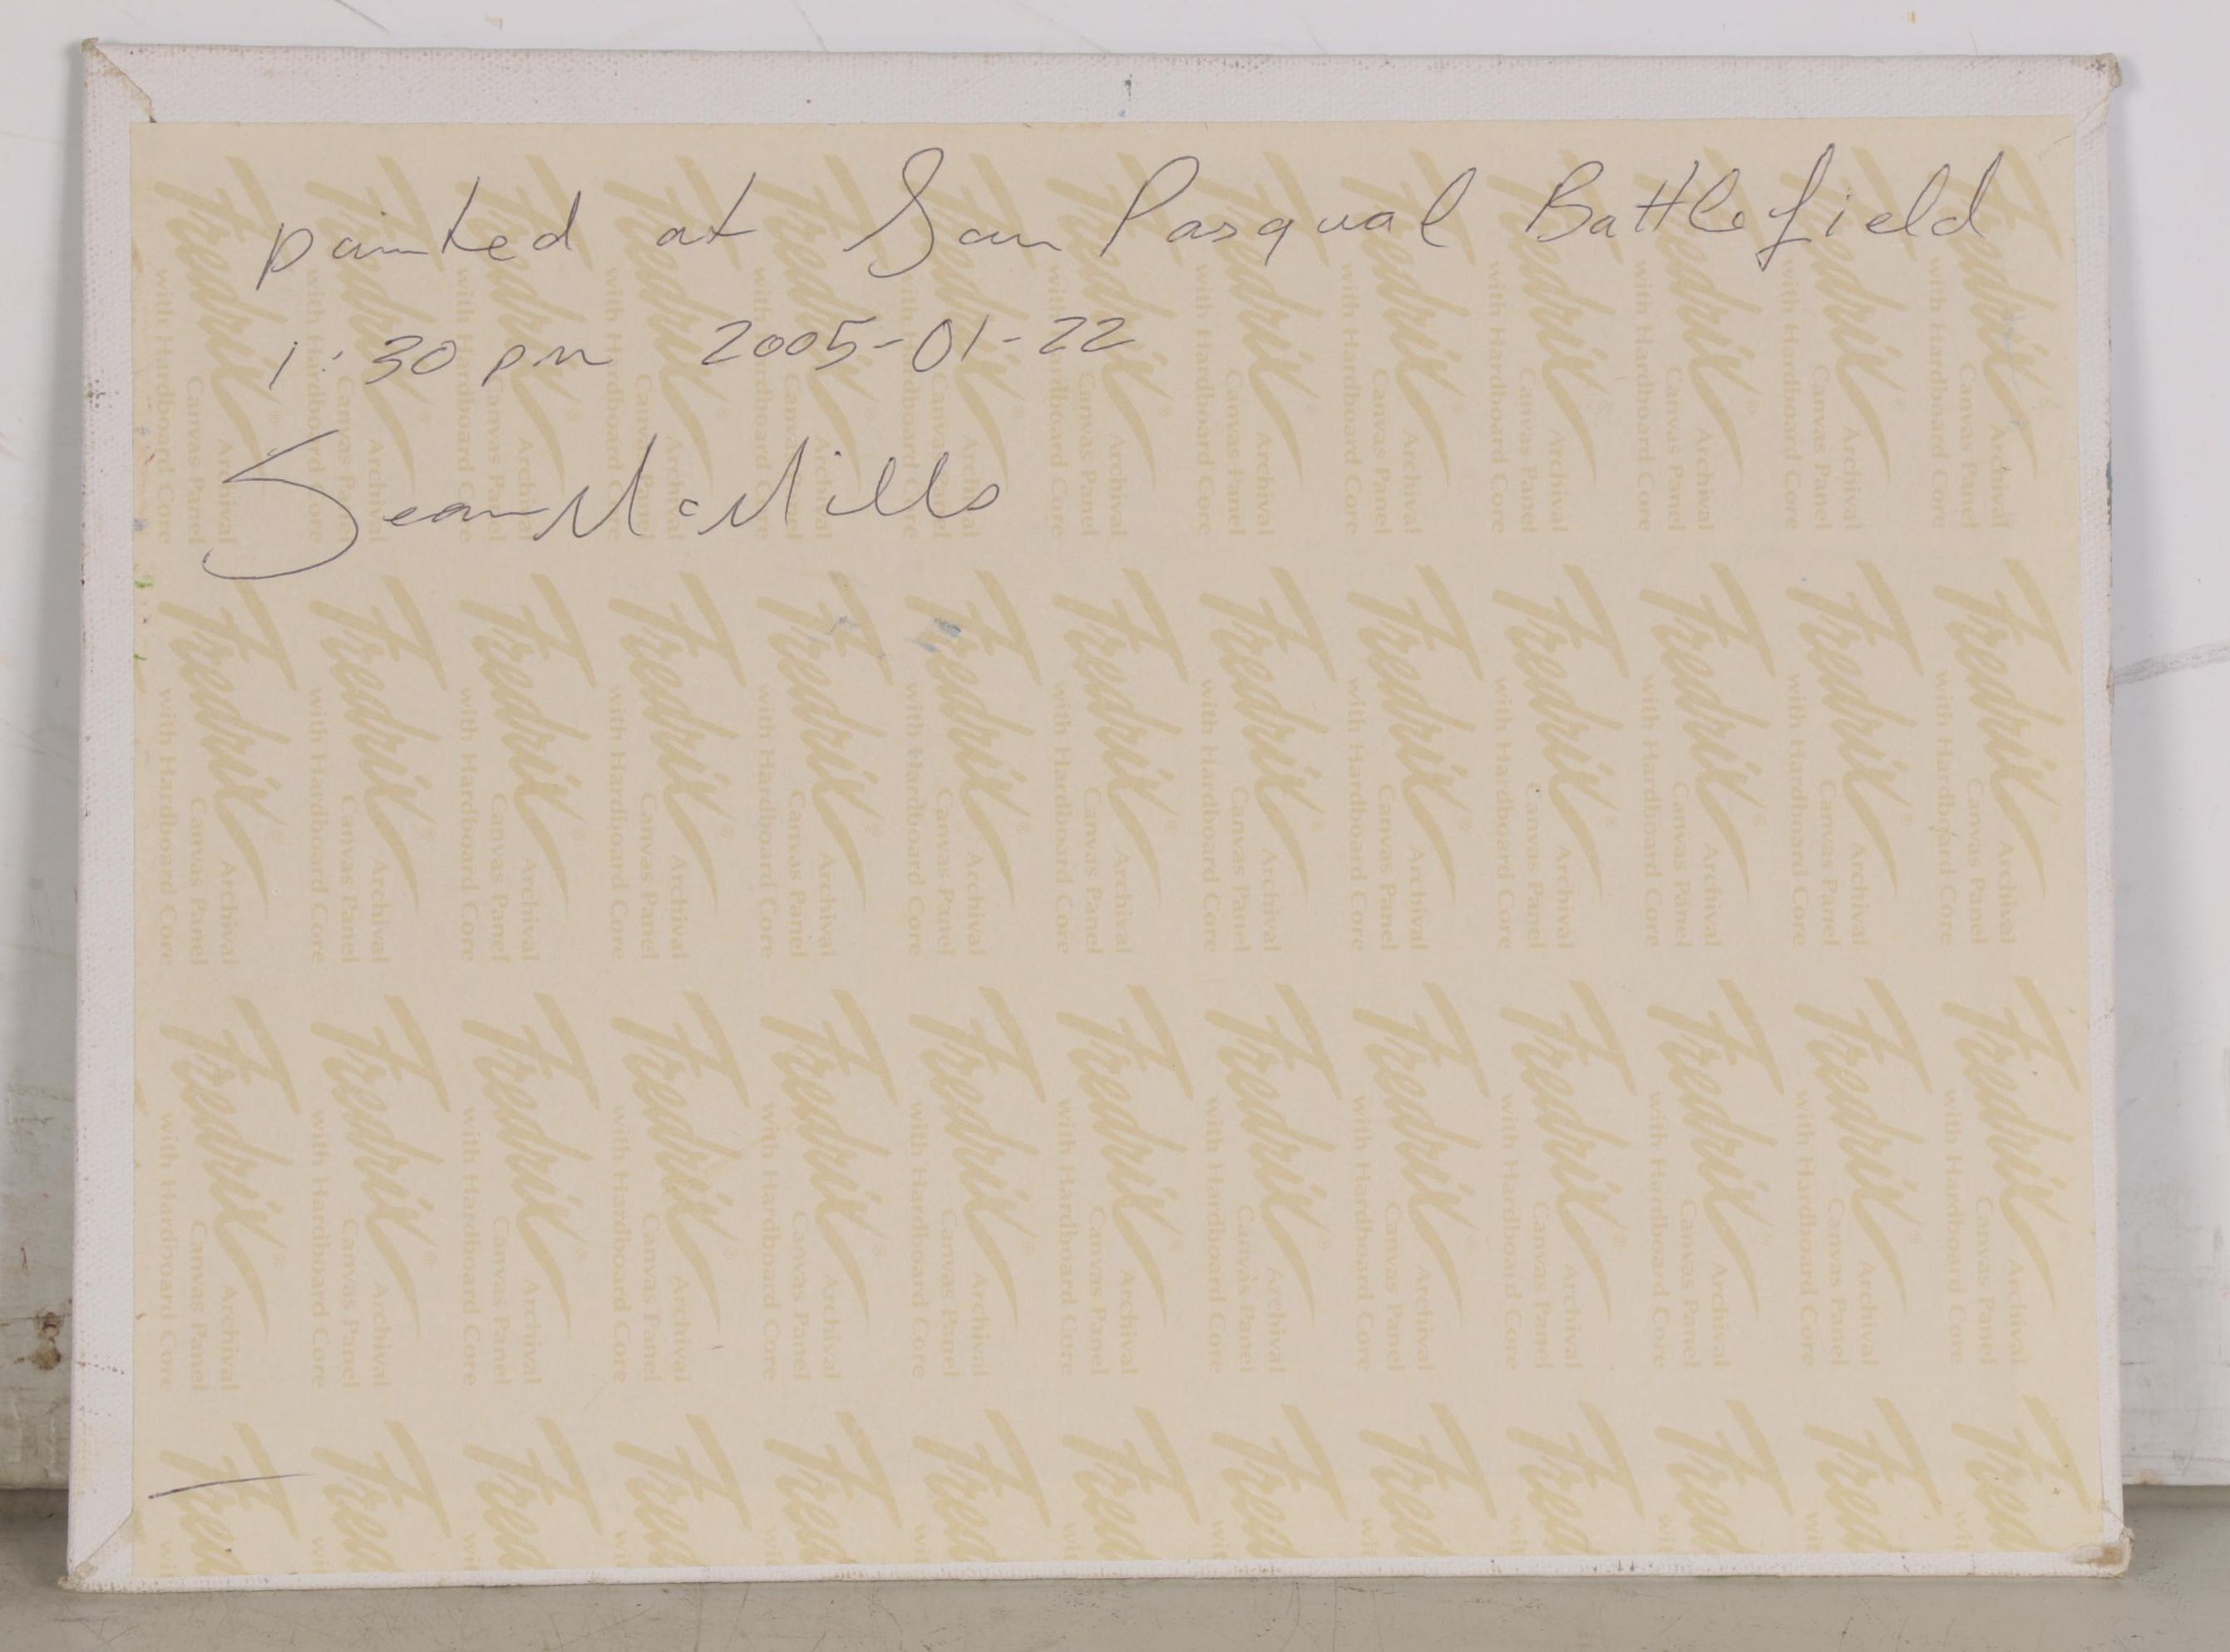 painted at San Pasqual Battlefield
1:30 pm 2005-01-22
Sean McMills
Fredrix® Archival
Canvas Panel
with Hardboard Core